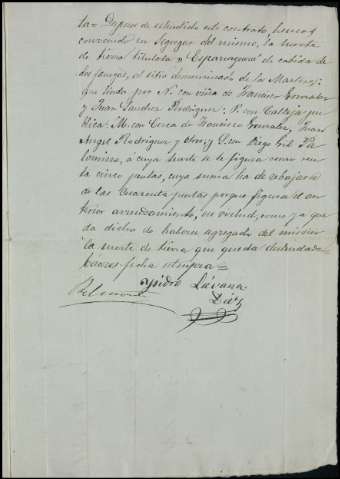 ta= Despues de estendido este contrato hemos
convenido en segregar del mismo, la suerte
de tierra titulada "Esparraguera" de cabida de
dos fanegas, al sitio denominado de los Martires;
que linda por N. con viña de Francisco Gonzalez
y Juan Sanchez Rodriguez; P. con Calleja pu-
blica; M. con Cerca de Francisco Gonzalez, Juan
Angel Rodriguez y otros; y D. con Diego Gil Pa-
lomino, a cuya suerte se le figura como ren-
ta cinco puntas, cuya suma ha de rebajarse
de las cuarenta puntas porque figura el an-
terior arrendamiento, en virtud, como ya que
da dicho de haberse segregado del mismo
la suerte de tierra que queda deslindada
fecha
Ysidro Lávana
Diez